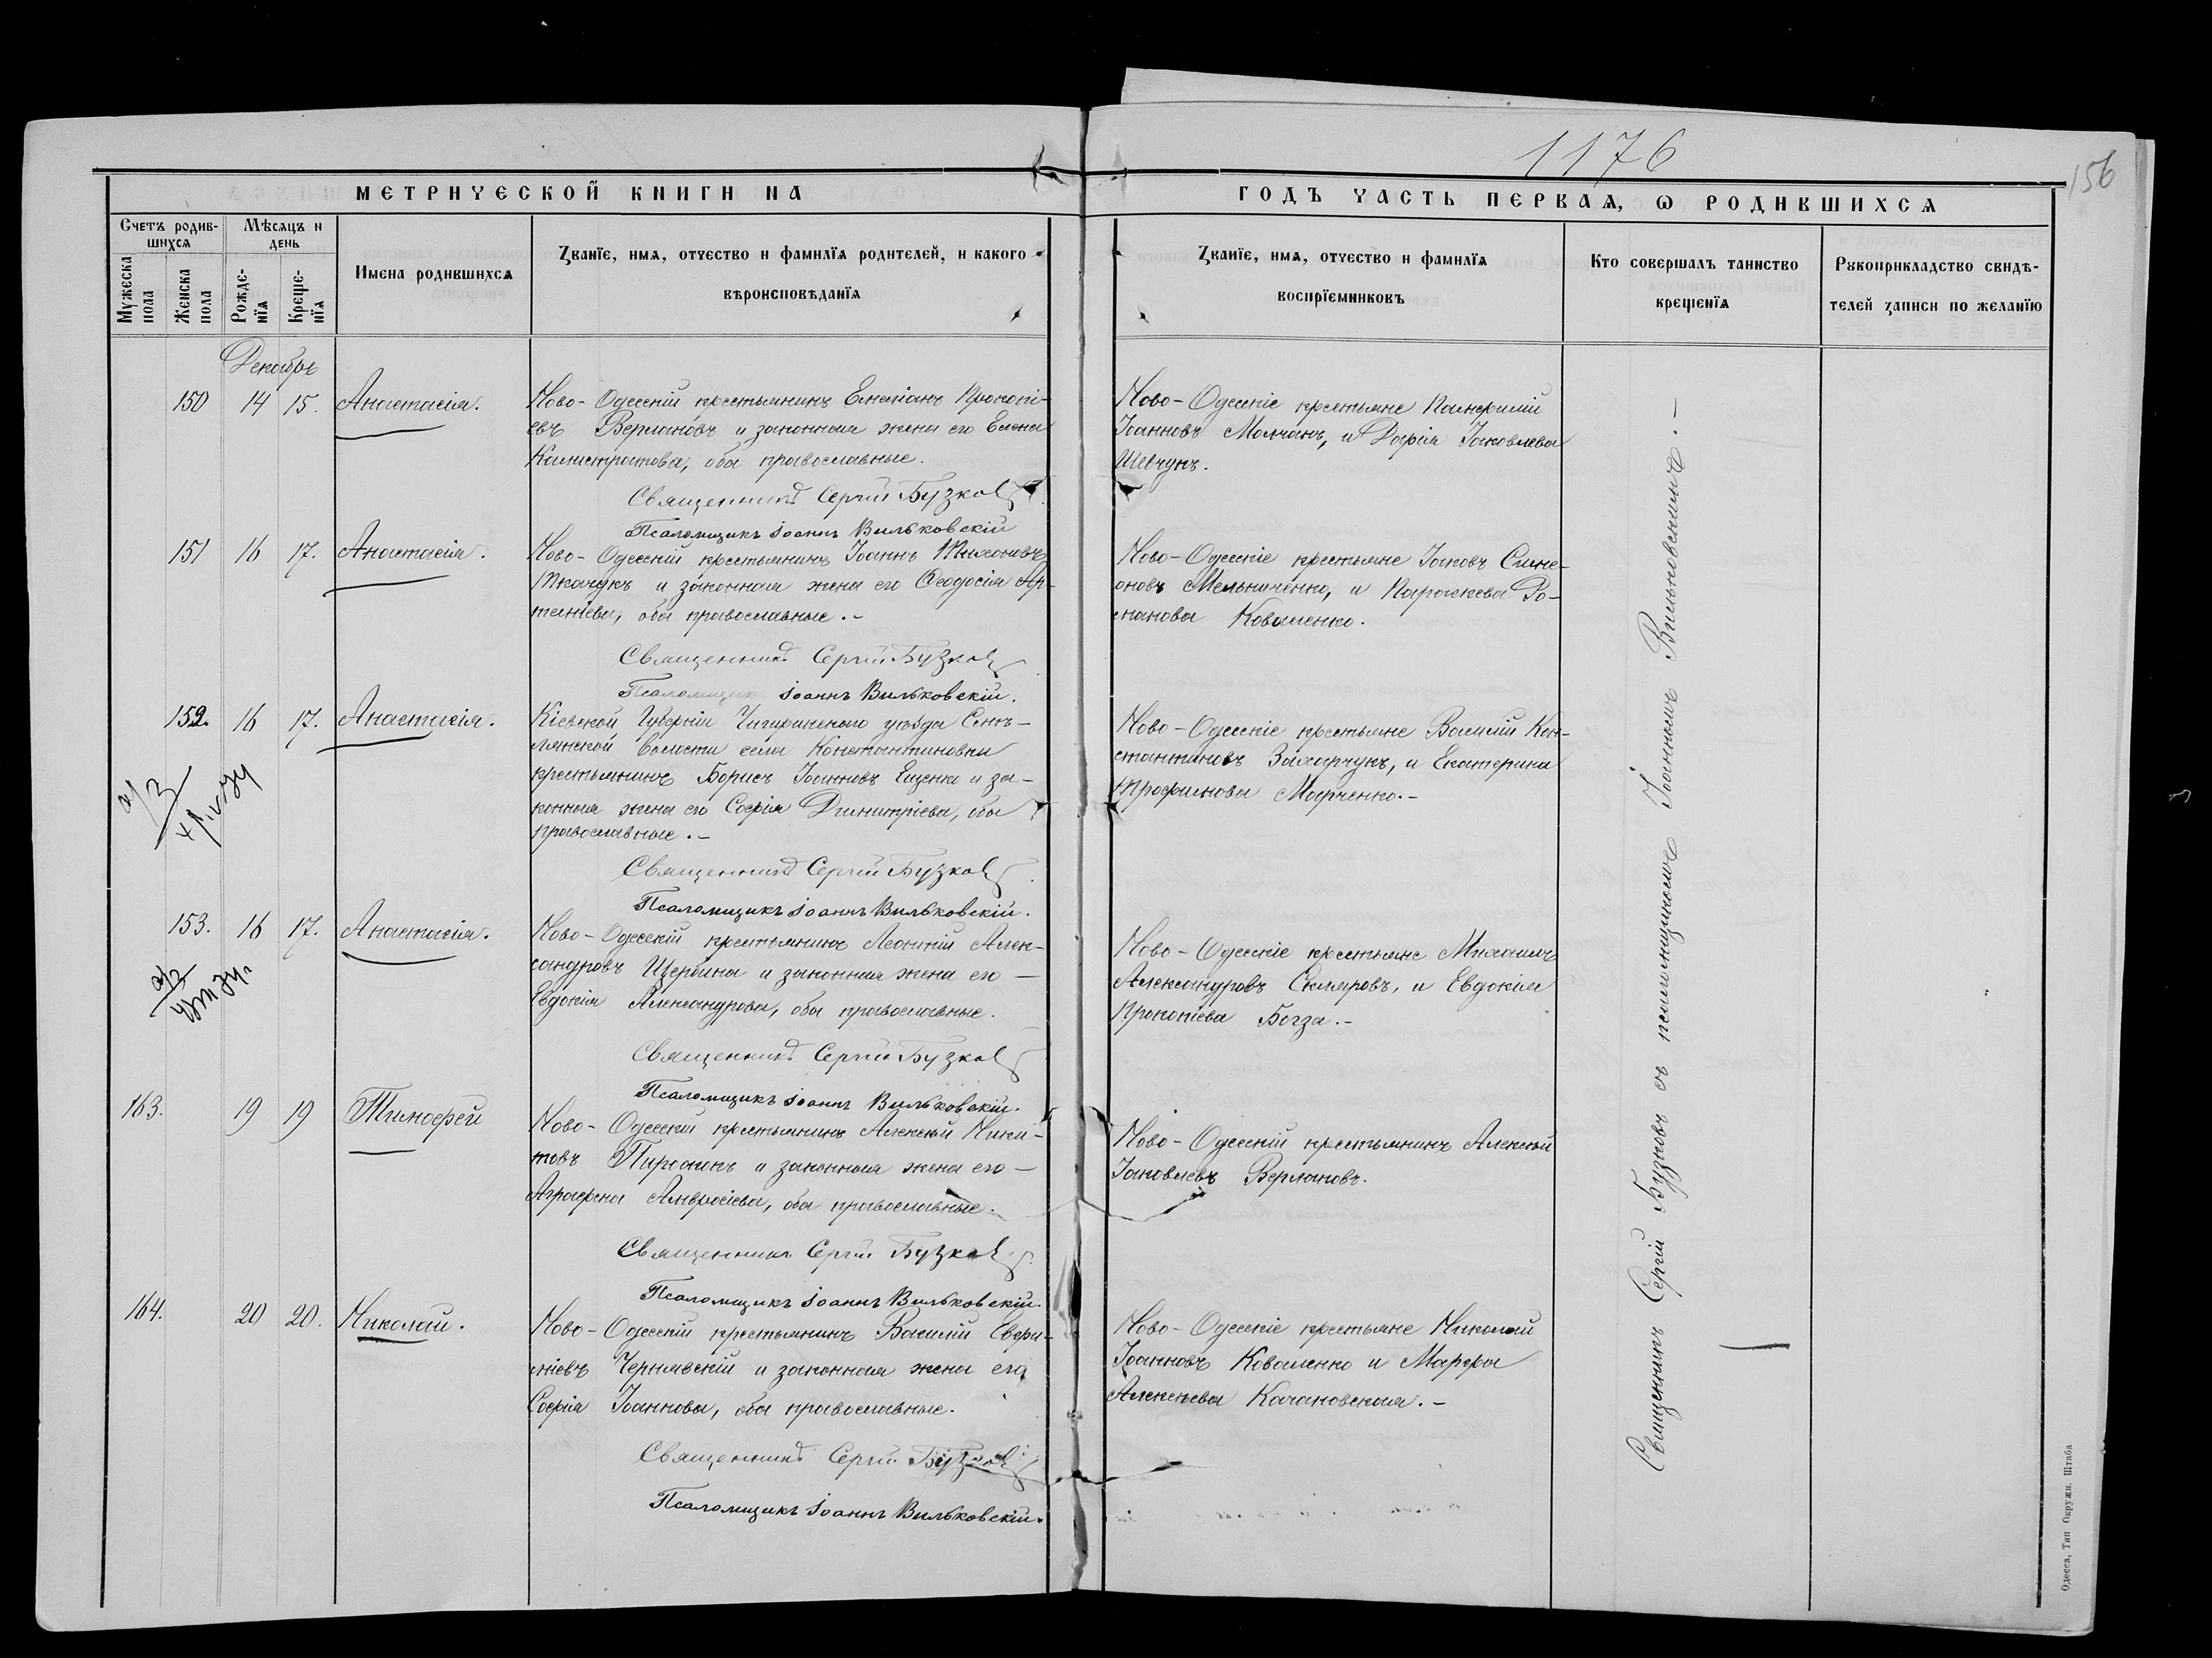 1176
156
МЕТРИЧЕСКОЙ КНИГИ НА
ГОДЪ ЧАСТЬ ПЕРВАѦ, Ѡ РОДИВШИХСѦ
Счетъ родив-
шихсѧ
Мужеска
пола
Женска
пола
Мѣсѧцъ и
день
Рожде-
нїѧ
Креще-
нїѧ
Имена родившихсѧ
Званїе, имѧ, отчество и фамилїѧ родителей, и какого
вѣроисповѣданїѧ
Званїе, имѧ, отчество и фамилїѧ
воспрїемниковъ
Кто совершалъ таинство
крещенїѧ
Рꙋкоприкладство свидѣ-
телей записи по желанїю
Декабрь
150 14 15. Анастасія.
Ново-Одесскій крестьянинъ Емеліанъ Прокопі-
евъ Верлановъ и законная жена его Елена
Калистратова, оба православные.
Священникъ Сергій Бузковъ
Псаломщикъ Іоаннъ Вильковскій
Ново-Одесскіе крестьяне Панфилій
Іоанновъ Молчанъ, и Дарія Іаковлева
Шевчукъ.
151 16 17. Анастасія.
Ново-Одесскій крестьянинъ Іоаннъ Тихоновъ
Ткачукъ и законная жена его Ѳеодосія Ар-
теміева, оба православные.-
Священникъ Сергій Бузковъ
Псаломщикъ Іоаннъ Вильковскій.
Ново-Одесскіе крестьяне Іаковъ Симе-
оновъ Мельниченко, и Параскева Ро-
манова Коваленко.
152. 16 17. Анастасія.
Кіевской Губерніи Чигиринскаго уѣзда
лянской волости села Константиновки
крестьянинъ Борисъ Іоанновъ Ещенко и за-
конная жена его Софія Димитріева, оба
православные.-
Священникъ Сергій Бузковъ
Псаломщикъ Іоаннъ Вильковскій.
Ново-Одесскіе крестьяне Василій Кон-
стантиновъ Захарчукъ, и Екатерина
Трофимова Марченко.-
153. 16 17. Анастасія.
Ново-Одесскій крестьянинъ Леонтій Алек-
сандровъ Щербина и законная жена его -
Евдокія Александрова, оба православные.
Священникъ Сергій Бузковъ
Псаломщикъ Іоаннъ Вильковскій.
Ново-Одесскіе крестьяне Михаилъ
Александровъ Скляровъ, и Евдокія
Прокопіева Богза.-
163. 19 19 Тимофей
Ново-Одесскій крестьянинъ Алексѣй Ники-
товъ Пирожокъ и законная жена его -
Аграфена Амвросіева, оба православные.
Священникъ Сергій Бузковъ
Псаломщикъ Іоаннъ Вильковскій.
Ново-Одесскій крестьянинъ Алексѣй
Іаковлевъ Верлановъ.
164. 20 20. Николай.
Ново-Одесскій крестьянинъ Василій Евфи-
міевъ Чернявскій и законная жена его
Софія Іоаннова, оба православные.
Священникъ Сергій Бузковъ
Псаломщикъ Іоаннъ Вильковскій.
Ново-Одесскіе крестьяне Николай
Іоанновъ Коваленко и Марфа
Алексѣева Качановская.-
Священникъ Сергій Бузковъ съ псаломщикомъ Іоанномъ Вильковскимъ.-
Одесса, Тип Окружн. Штаба